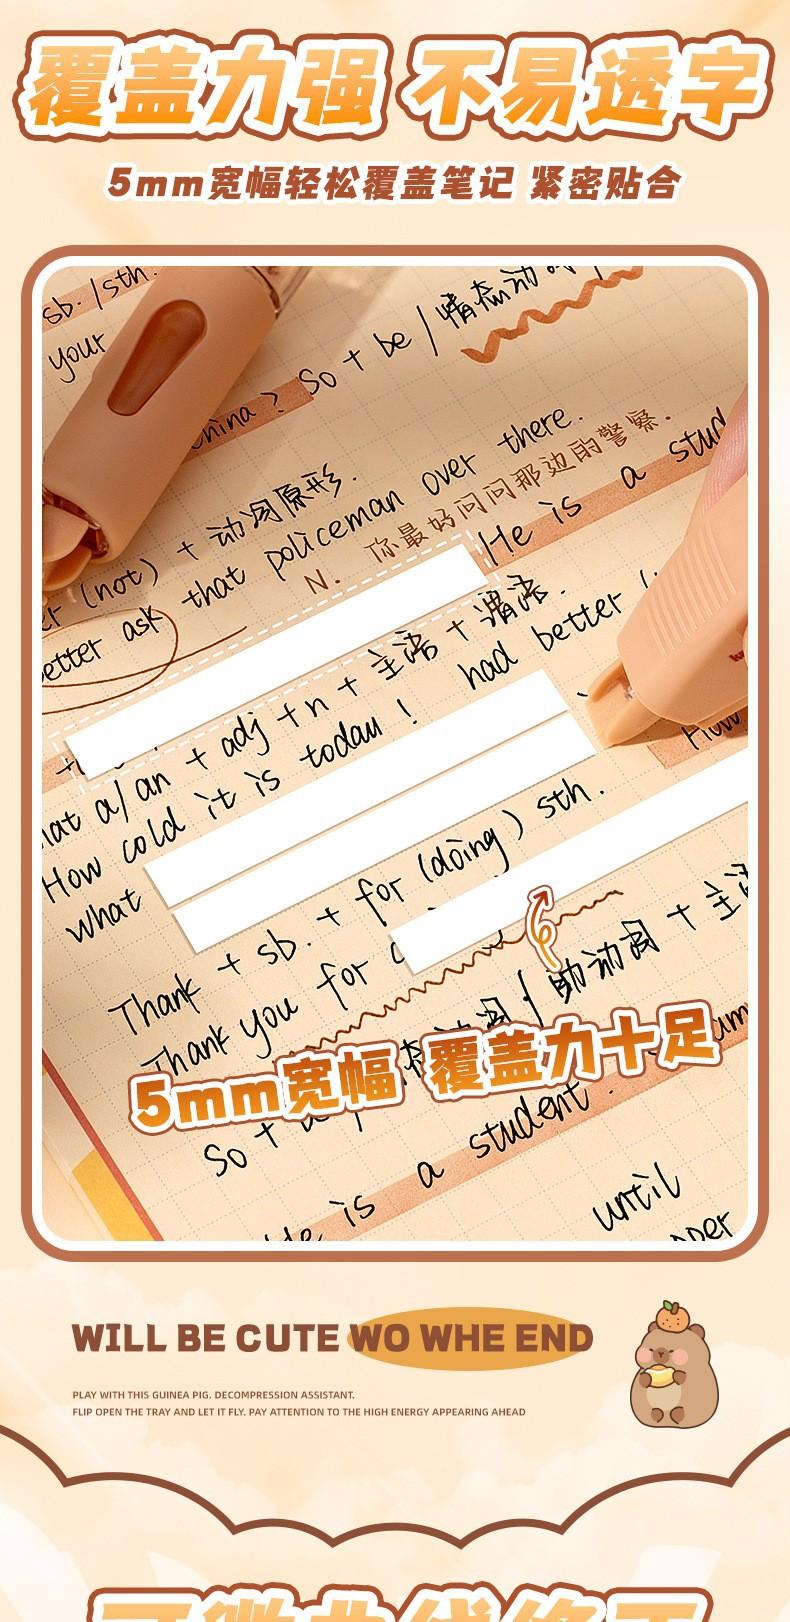 覆盖力强 不易透字
5mm宽幅轻松覆盖笔记 紧密贴合
sb. / sth.
your
So + be / 情态动词 /
China ?
er (not) + 动词原形.
better ask that policeman over there.
N. 你最好问问那边的警察.
He is a stud
at a/an + adj + n + 主语 + 谓语.
How cold it is today ! had better (
What
How
Thank + sb. + for (doing) sth.
Thank you for
态动词 / 助动词 + 主语
5mm宽幅 覆盖力十足
So +
He is a student.
until
WILL BE CUTE WO WHE END
PLAY WITH THIS GUINEA PIG. DECOMPRESSION ASSISTANT.
FLIP OPEN THE TRAY AND LET IT FLY. PAY ATTENTION TO THE HIGH ENERGY APPEARING AHEAD